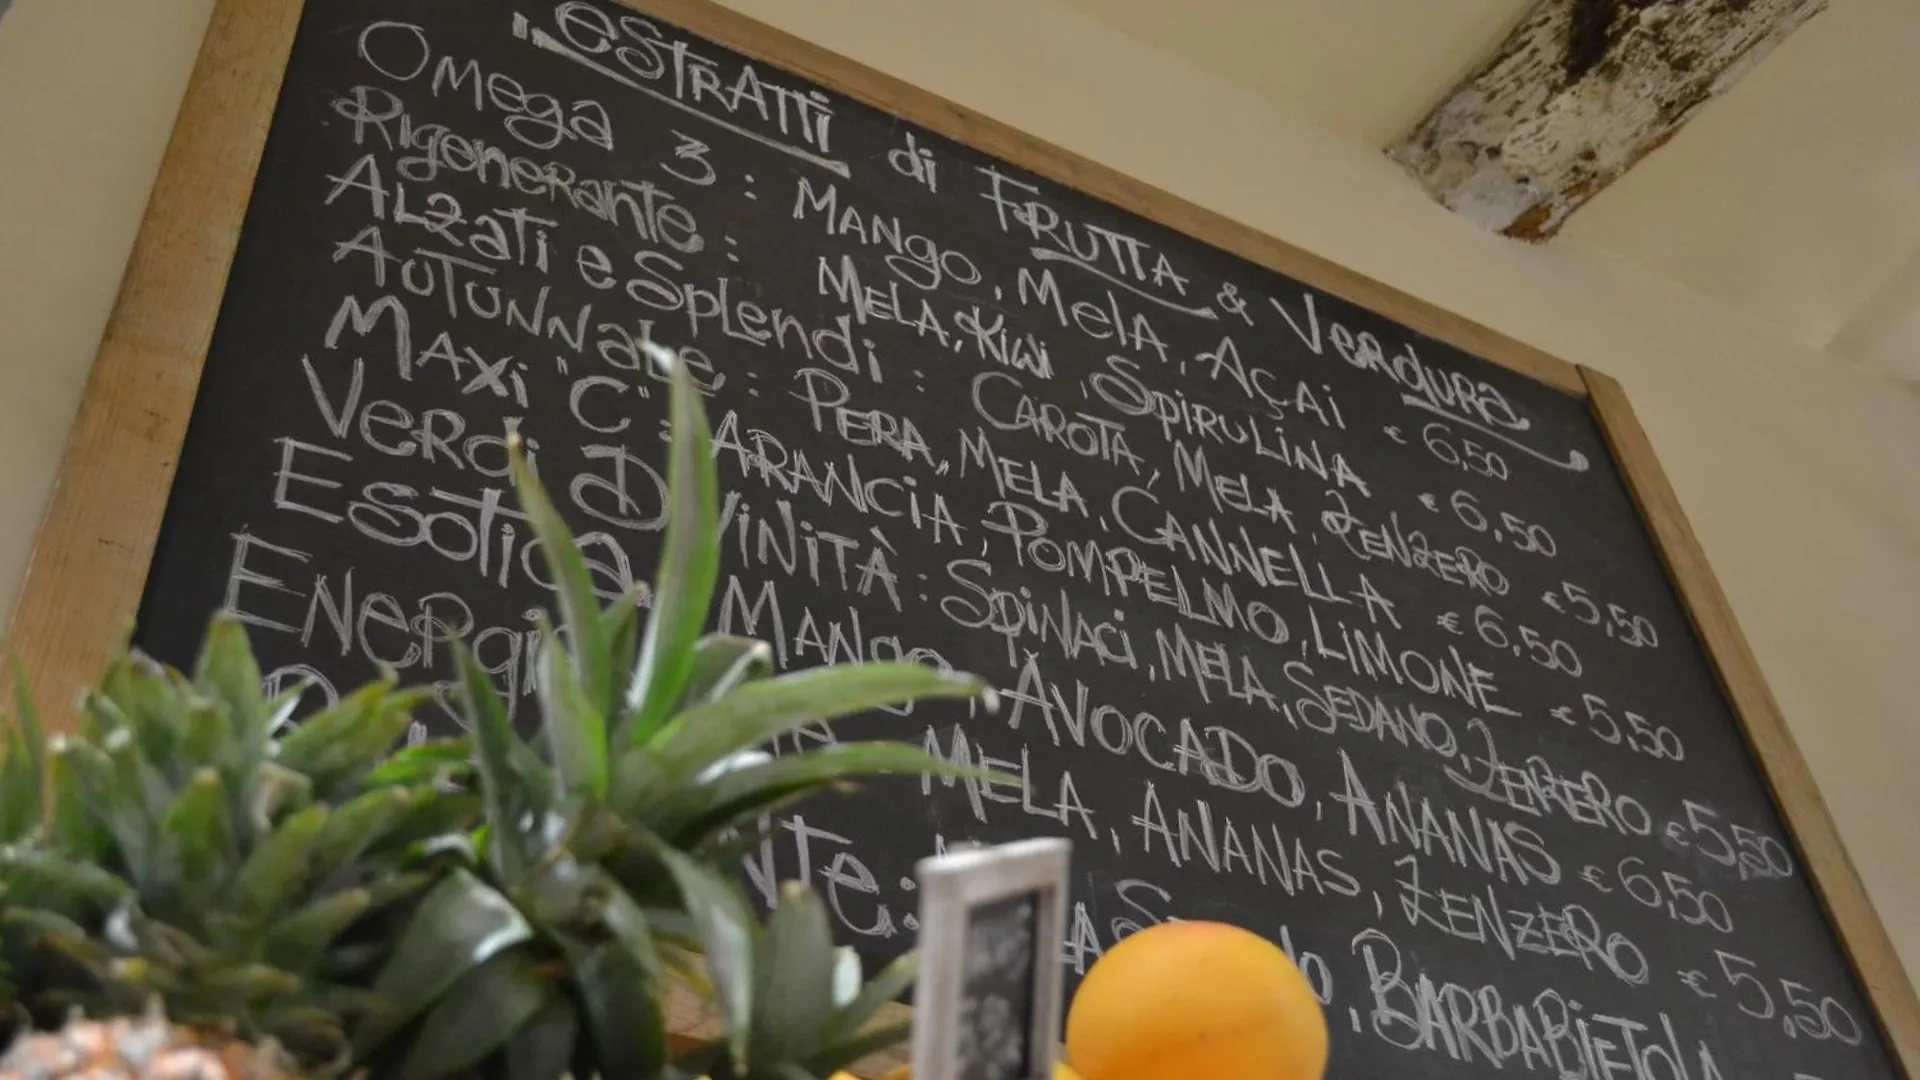 i ESTRATTI di FRUTTA & VERDURA
Omega 3 : MANGO, MELA, AÇAI € 6,50
Rigenerante : MELA, KIWI, SPIRULINA € 6,50
ALZATI e SPLENDI : CAROTA, MELA, ZENZERO € 5,50
AUTUNNALE : PERA, MELA, CANNELLA € 6,50
MAXI "C" : ARANCIA, POMPELMO, LIMONE € 5,50
VERDI DIVINITÀ : SPINACI, MELA, SEDANO, ZENZERO € 5,50
ESOTICA MANGO, AVOCADO, ANANAS € 6,50
MELA, ANANAS, ZENZERO € 5,50
BARBABIETOLA